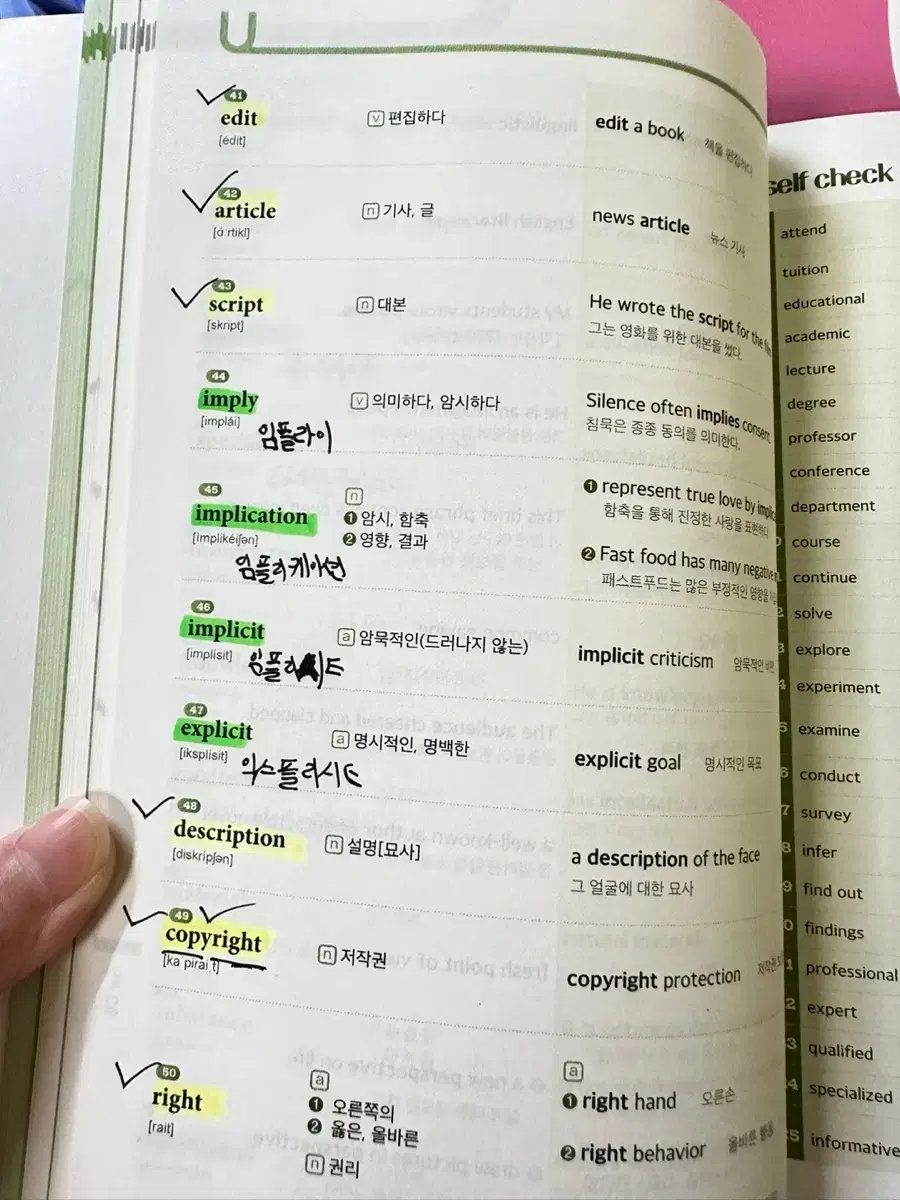 41
edit
[édit]
v 편집하다
edit a book 책을 편집하다
42
article
[ɑ́ːrtikl]
n 기사, 글
news article 뉴스 기사
43
script
[skript]
n 대본
He wrote the script for the
그는 영화를 위한 대본을 썼다.
44
imply
[implái]
임플라이
v 의미하다, 암시하다
Silence often implies consent.
침묵은 종종 동의를 의미한다.
45
implication
[implikéiʃən]
임플리케이션
n
❶ 암시, 함축
❷ 영향, 결과
❶ represent true love by
함축을 통해 진정한 사랑을 표현하다
❷ Fast food has many negative
패스트푸드는 많은 부정적인 영향을
46
implicit
[implísit]
a 암묵적인(드러나지 않는)
implicit criticism 암묵적인 비판
47
explicit
[iksplísit]
익스플리시트
a 명시적인, 명백한
explicit goal 명시적인 목표
48
description
[diskrípʃən]
n 설명[묘사]
a description of the face
그 얼굴에 대한 묘사
49
copyright
n 저작권
copyright protection
50
right
[rait]
a
❶ 오른쪽의
❷ 옳은, 올바른
n 권리
a
❶ right hand 오른손
❷ right behavior 올바른 행동
self check
attend
tuition
educational
academic
lecture
degree
professor
conference
department
course
continue
solve
explore
experiment
examine
conduct
survey
infer
find out
findings
professional
expert
qualified
specialized
informative